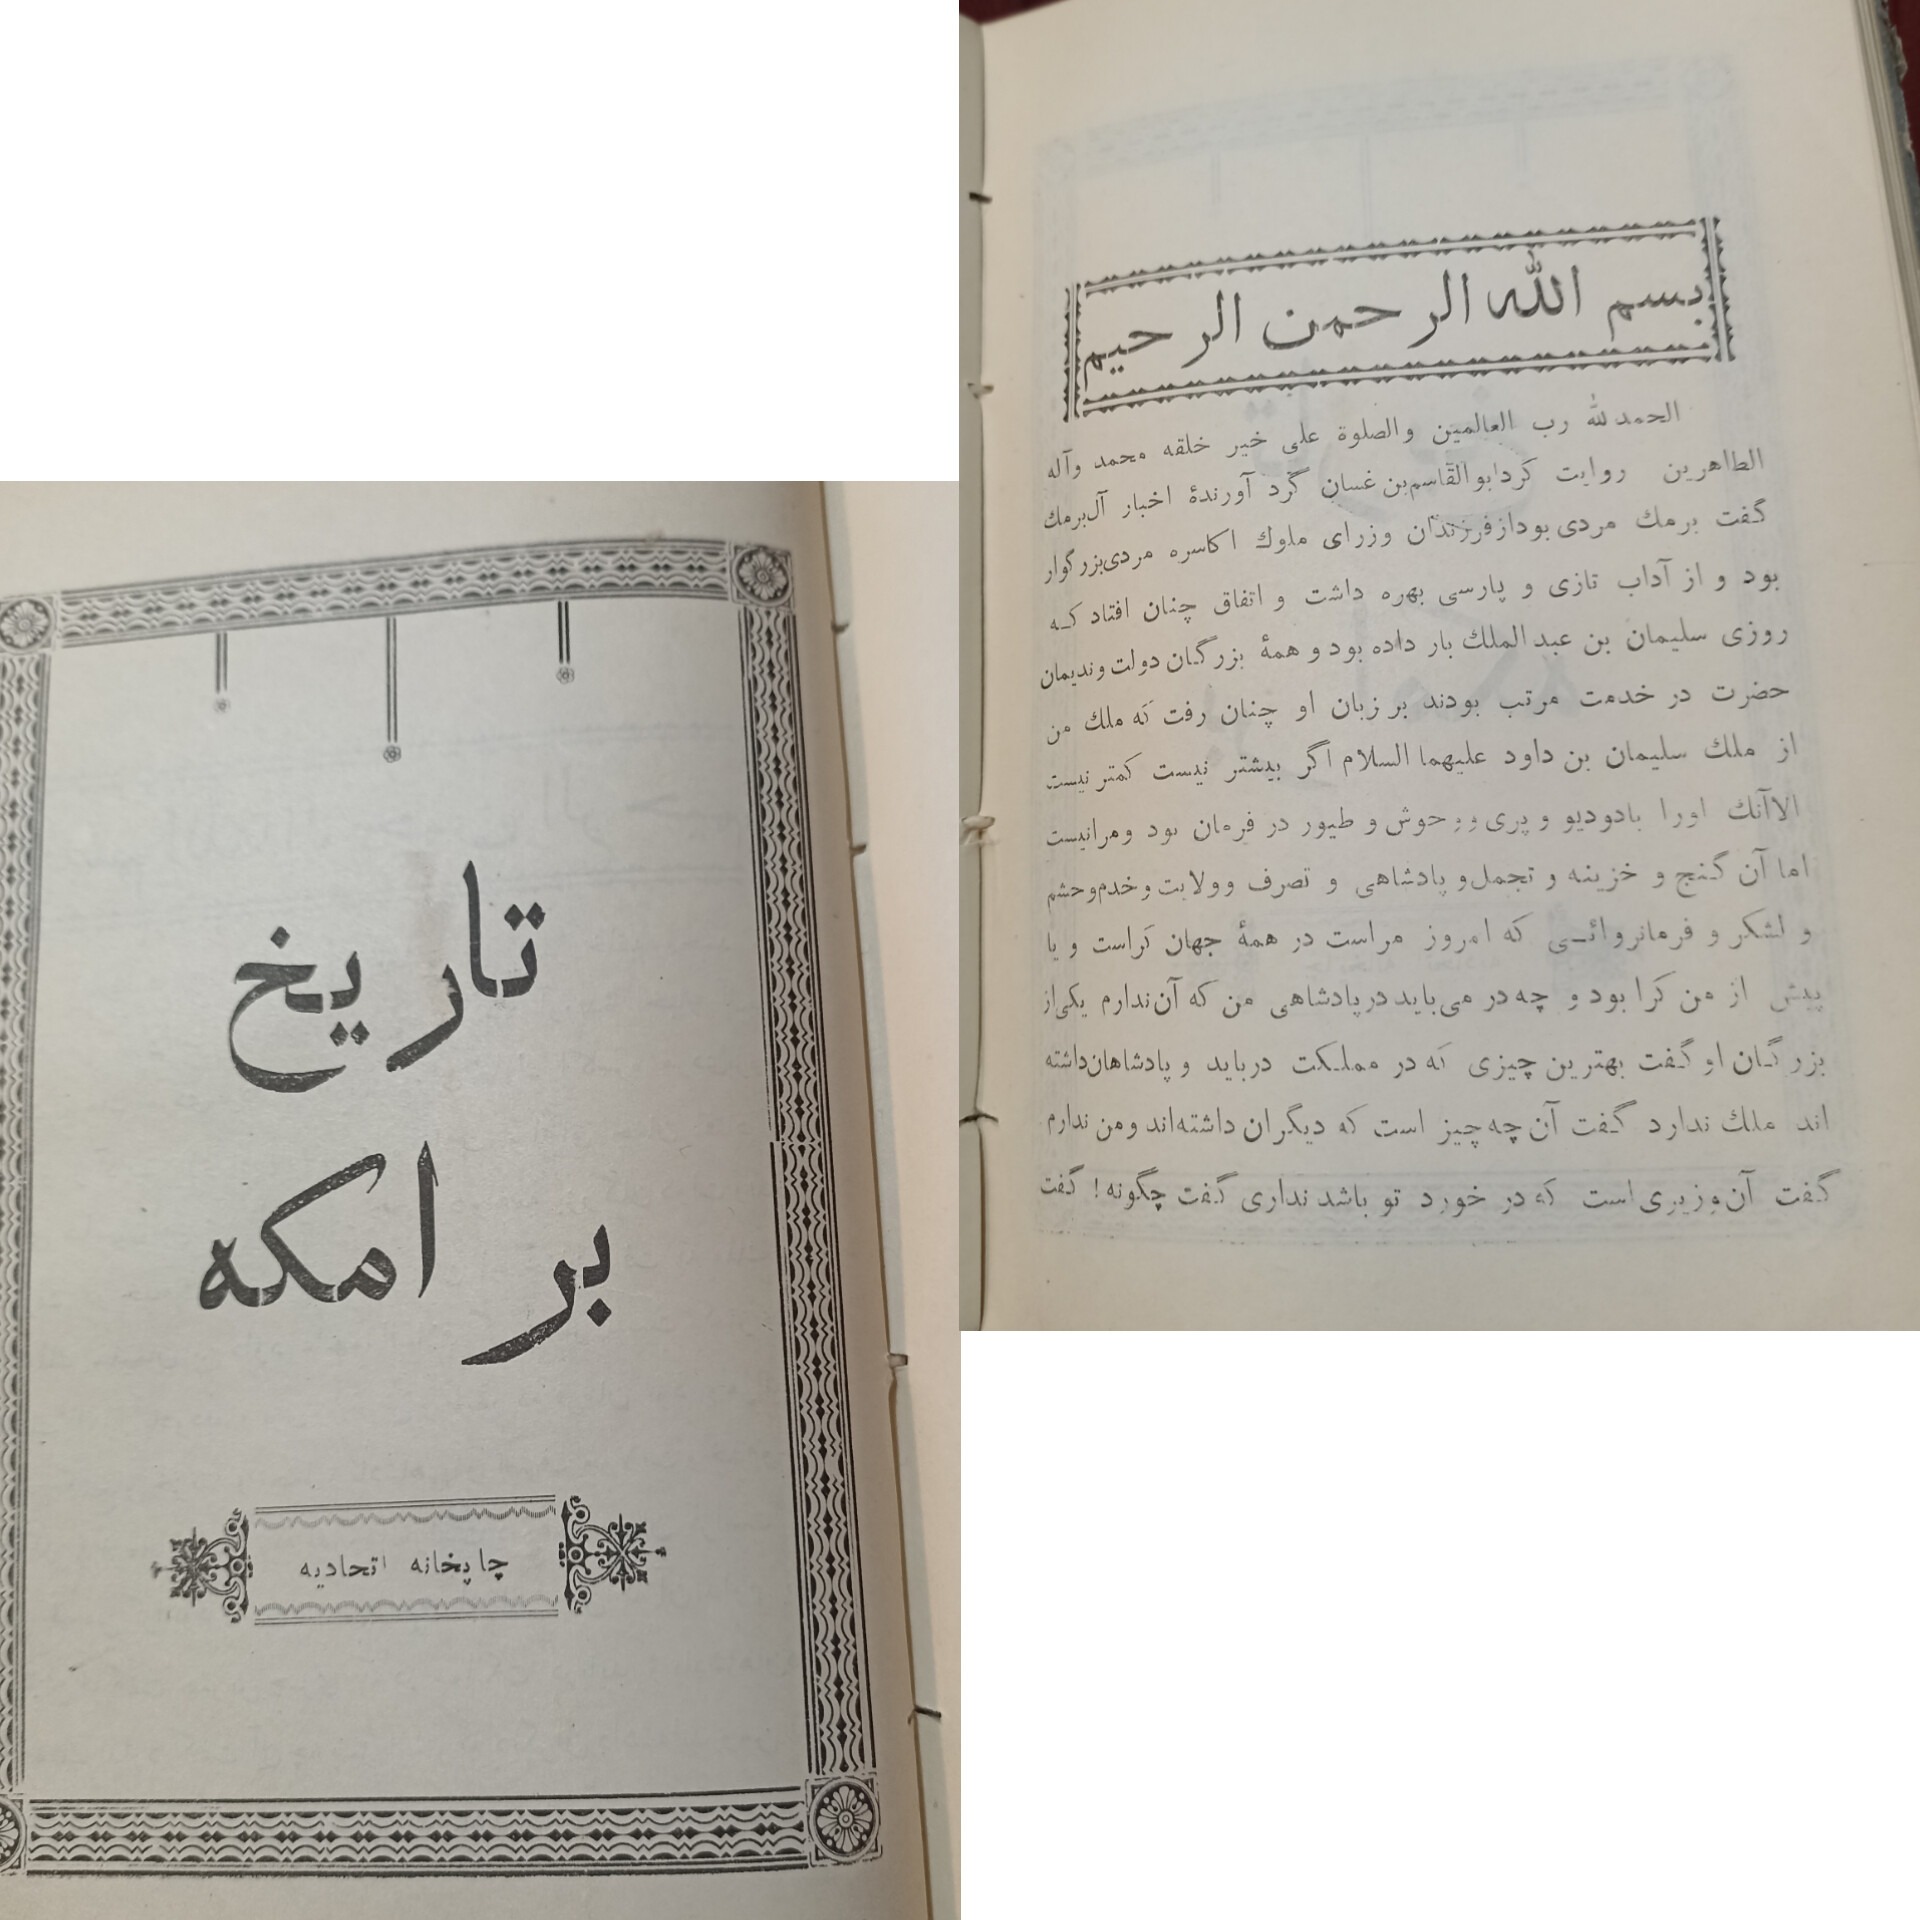 تاریخ
برامکه
چاپخانه اتحادیه
بسم الله الرحمن الرحیم
الحمدلله رب العالمین والصلوة علی خیر خلقه محمد وآله
الطاهرین روایت کردابوالقاسم‌بن غسان گرد آورندهٔ اخبار آل‌برمك
گفت برمك مردی بوداز فرزندان وزرای ملوك اکاسره مردی‌بزرگوار
بود و از آداب تازی و پارسی بهره داشت و اتفاق چنان افتاد که
روزی سلیمان بن عبدالملك بار داده بود و همهٔ بزرگان دولت وندیمان
حضرت در خدمت مرتب بودند بر زبان او چنان رفت که ملك من
از ملك سلیمان بن داود علیهما السلام اگر بیشتر نیست کمتر نیست
الاآنك اورا بادودیو و پری ووحوش و طیور در فرمان بود ومرانیست
اما آن گنج و خزینه و تجمل‌و پادشاهی و تصرف وولایت وخدم‌وحشم
و لشکر و فرمانروائی که امروز مراست در همهٔ جهان کراست و یا
پیش از من کرا بود و چه در می‌باید درپادشاهی من که آن‌ندارم یکی‌از
بزرگان او گفت بهترین چیزی که در مملکت درباید و پادشاهان‌داشته
اند ملك ندارد گفت آن چه چیز است که دیگران داشته‌اند ومن ندارم
گفت آن‌وزیری‌است که در خورد تو باشد نداری گفت چگونه! گفت